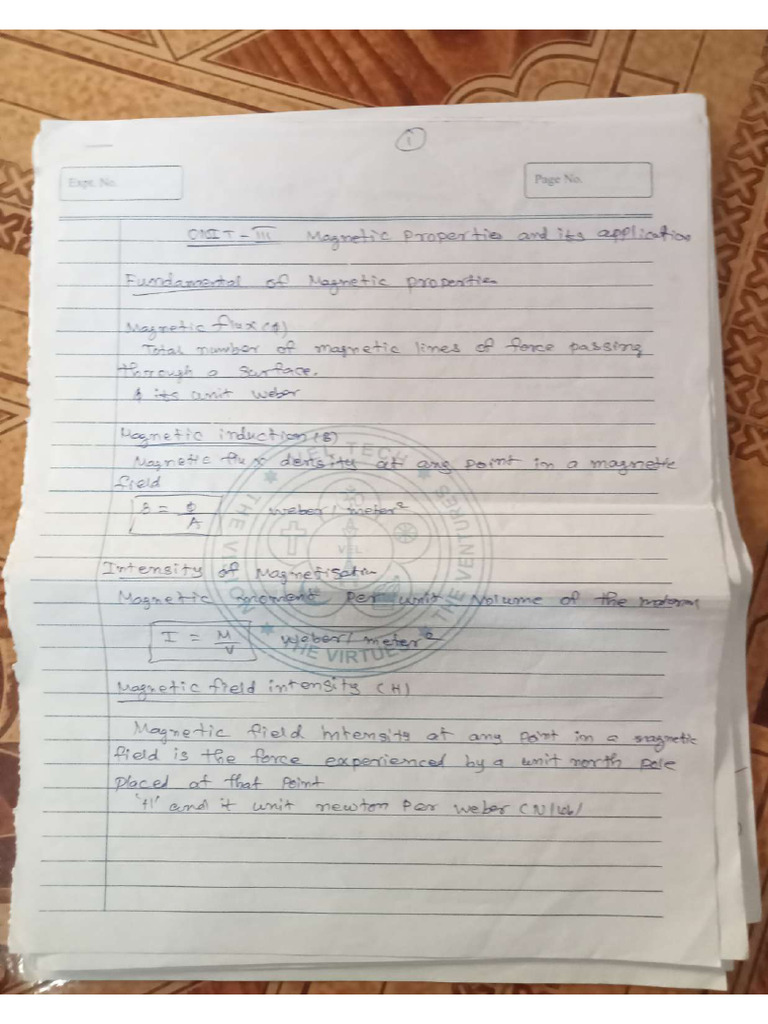 1
Expt. No.
Page No.
UNIT - III Magnetic properties and its application
Fundamental of Magnetic properties
Magnetic flux (ϕ)
Total number of magnetic lines of force passing
through a surface.
its unit weber
Magnetic induction (B)
Magnetic flux density at any point in a magnetic
field
B = ϕ/A weber/meter²
Intensity of Magnetisation
Magnetic moment per unit volume of the material
I = M/V weber/meter²
Magnetic field intensity (H)
Magnetic field intensity at any point in a magnetic
field is the force experienced by a unit north pole
placed at that point
'H' and it unit newton per weber (N/wb/
VEL TECH
THE VENTURES
THE VIRTUE